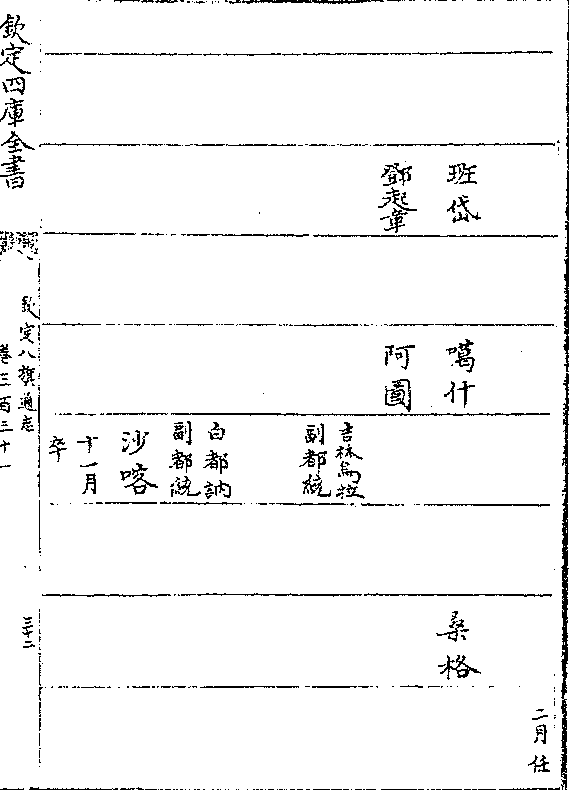 二月任
班岱
鄧起章
噶什
阿圖
吉林烏拉
副都統
白都訥
副都統
沙喀
十一月
卒
桑格
欽定四庫全書
欽定八旗通志
卷三百三十一
三十二